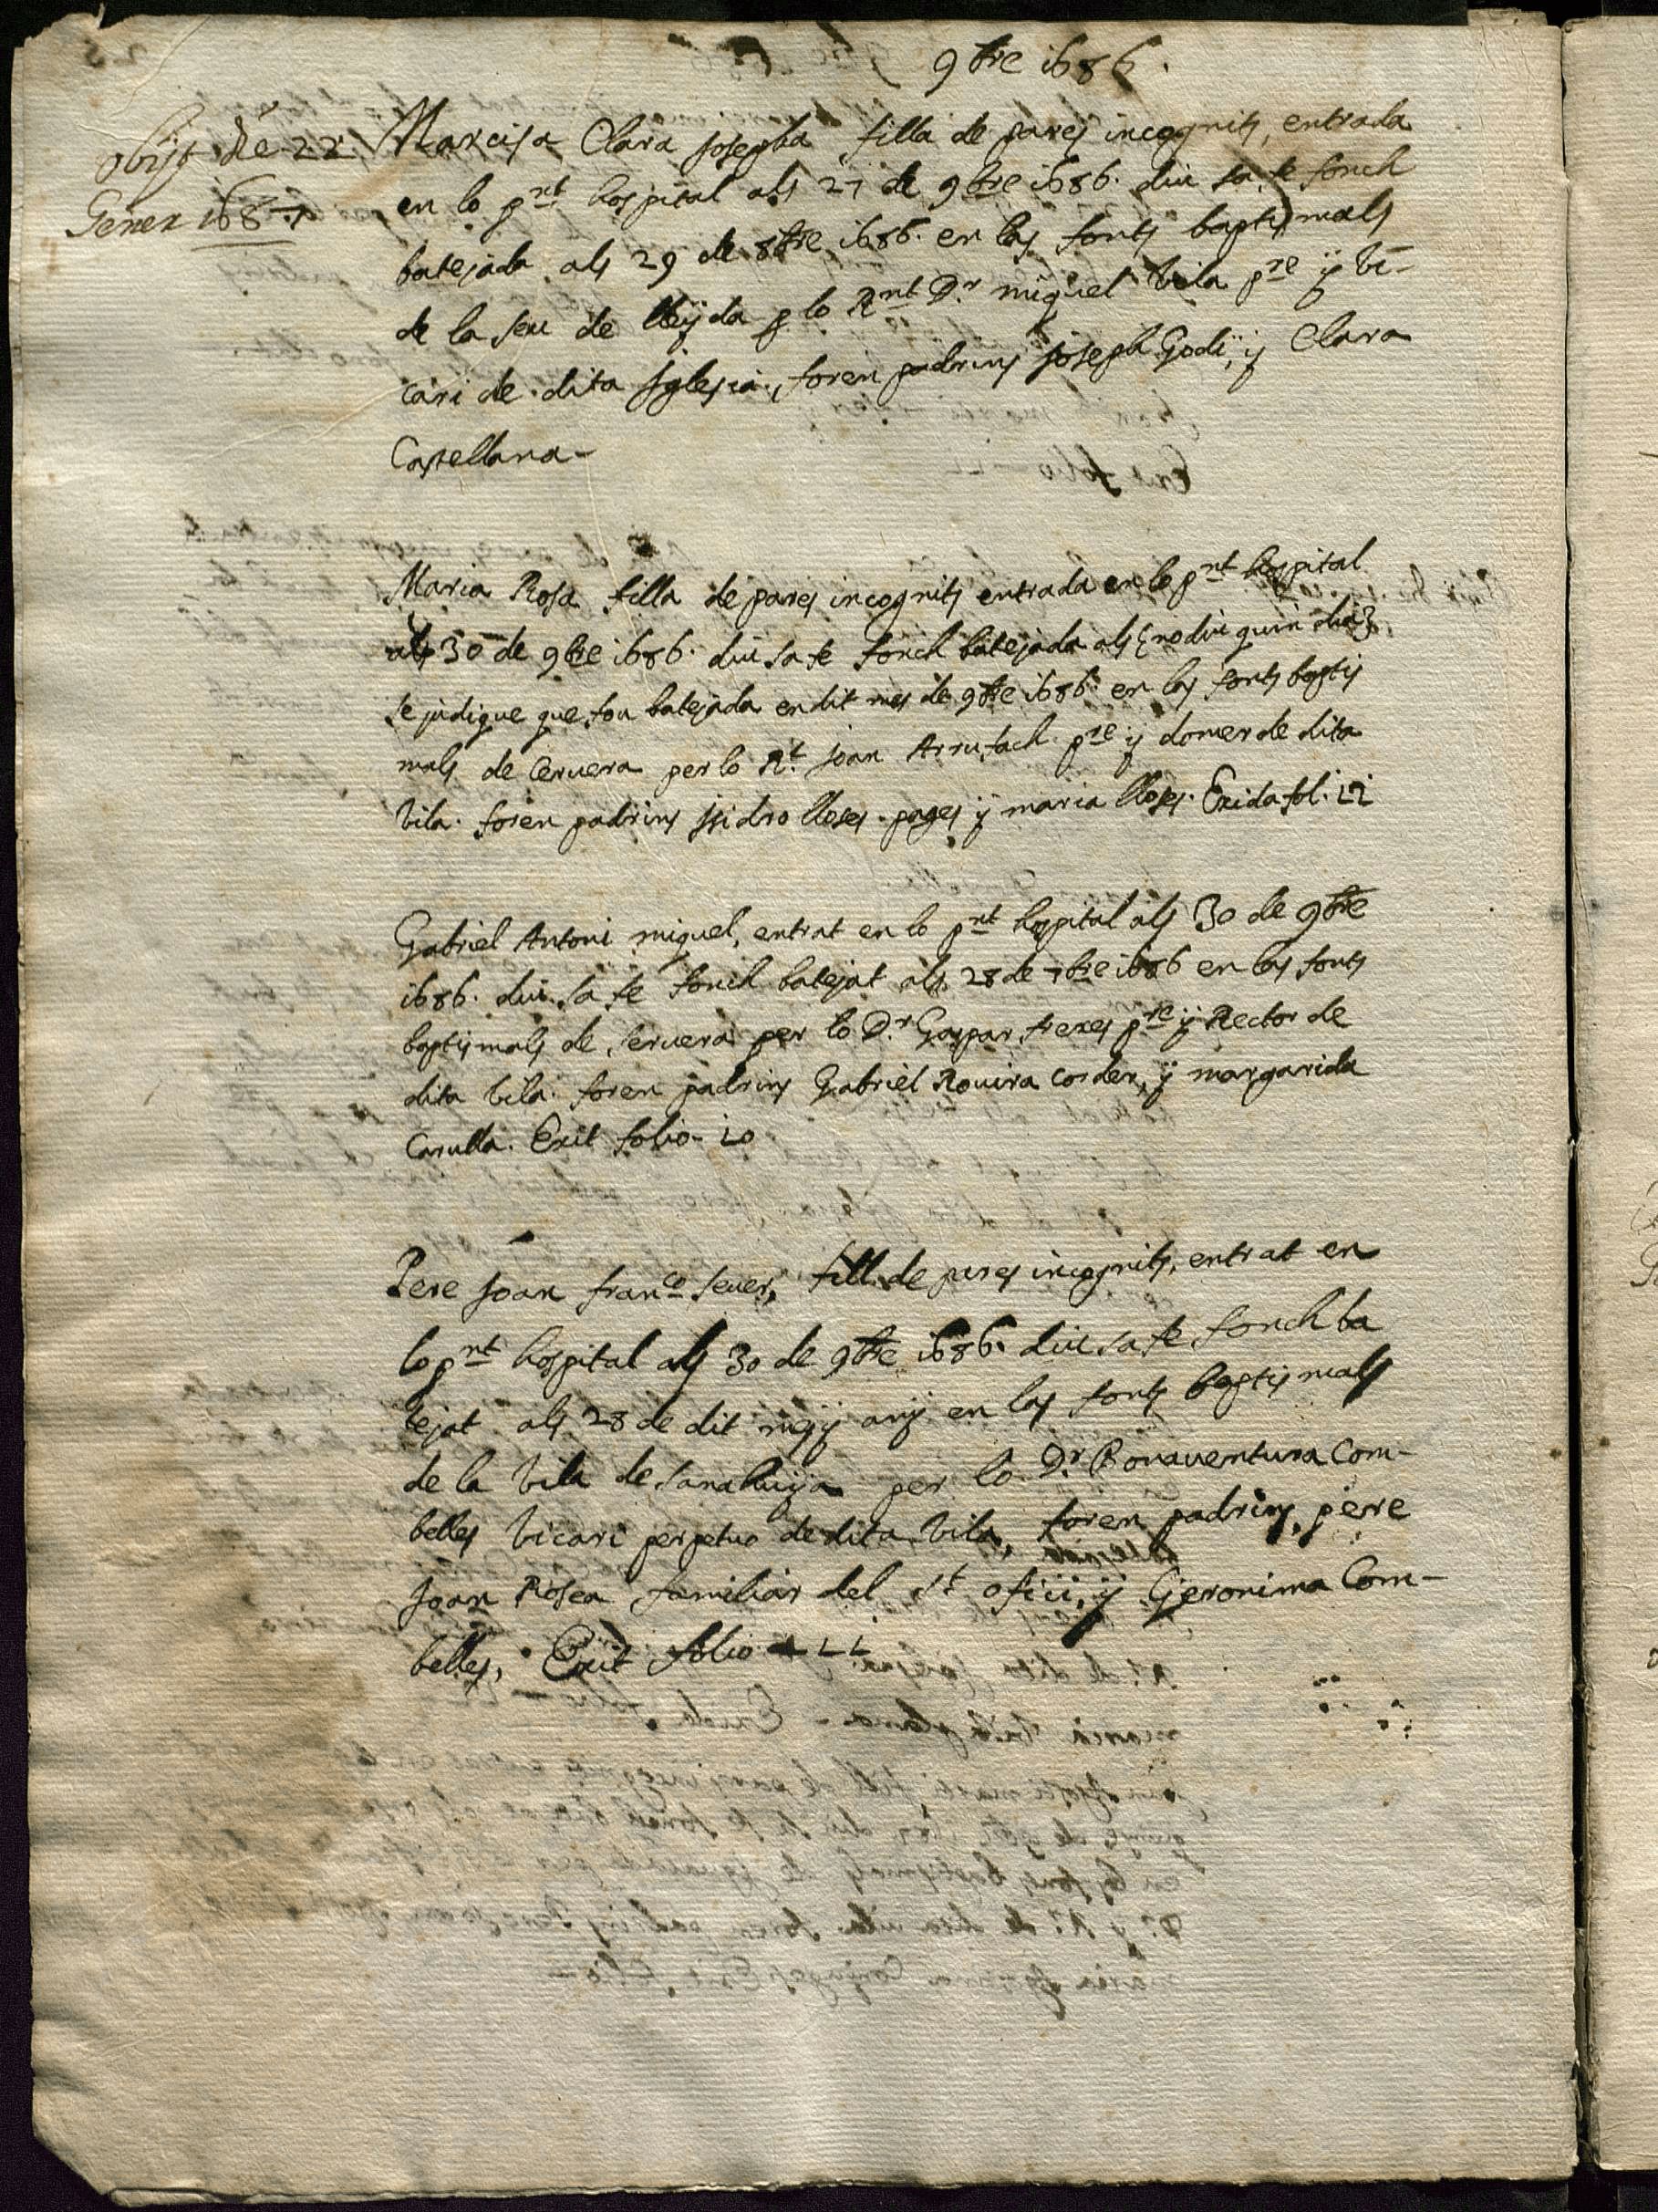 9bre 1686.
obijt die 22
Gener 1687
Narcisa Clara Josepha filla de pares incognits, entrada
en lo pnt hospital als 27 de 9bre 1686. diu sa fe fonch
batejada als 29 de 8bre 1686. en las fonts baptismals
de la seu de lleyda p lo Rnt Dr. miquel Vila pre y vi-
cari de dita Iglesia, foren padrins Joseph Godi, y Clara
Castellana-
Maria Rosa filla de pares incognits entrada en lo pnt hospital
als 30 de 9bre 1686. diu sa fe fonch batejada als {no diu quin dia}
se judique que fou batejada en dit mes de 9bre 1686. en las fonts baptis
mals de Cervera per lo Rt. Joan Arrufach pre y domer de dita
Vila. foren padrins Isidro lloses pages y maria lloses. Exida fol. 11
Gabriel Antoni miquel, entrat en lo pnt hospital als 30 de 9bre
1686. diu sa fe fonch batejat als 28 de 7bre 1686 en las fonts
baptismals de Servera per lo Dr. Gaspar frexes pre y Rector de
dita Vila. foren padrins Gabriel Rovira corder, y margarida
Carulla. Exit folio 10
Pere Joan Franco sever, fill de pares incognits, entrat en
lo pnt hospital als 30 de 9bre 1686. diu sa fe fonch ba
tejat als 28 de dit mes y any en las fonts baptismals
de la Vila de sanahuija per lo Dr. Bonaventura Com-
belles Vicari perpetuo de dita Vila, foren padrins, pere
Joan Rosea familiar del st ofici, y Geronima Com-
belles. Exit folio 11